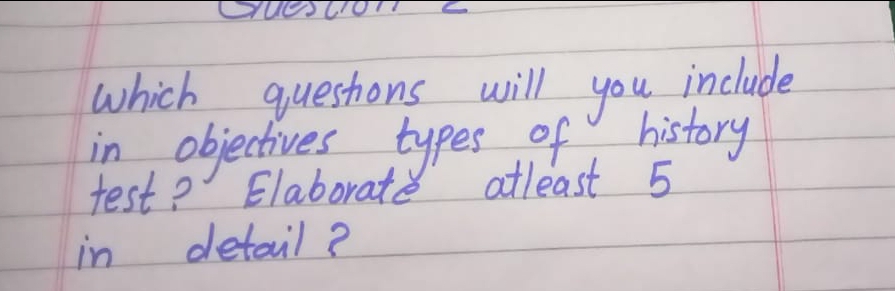 Question 2
Which questions will you include
in objectives types of history
test? Elaborate atleast 5
in detail?